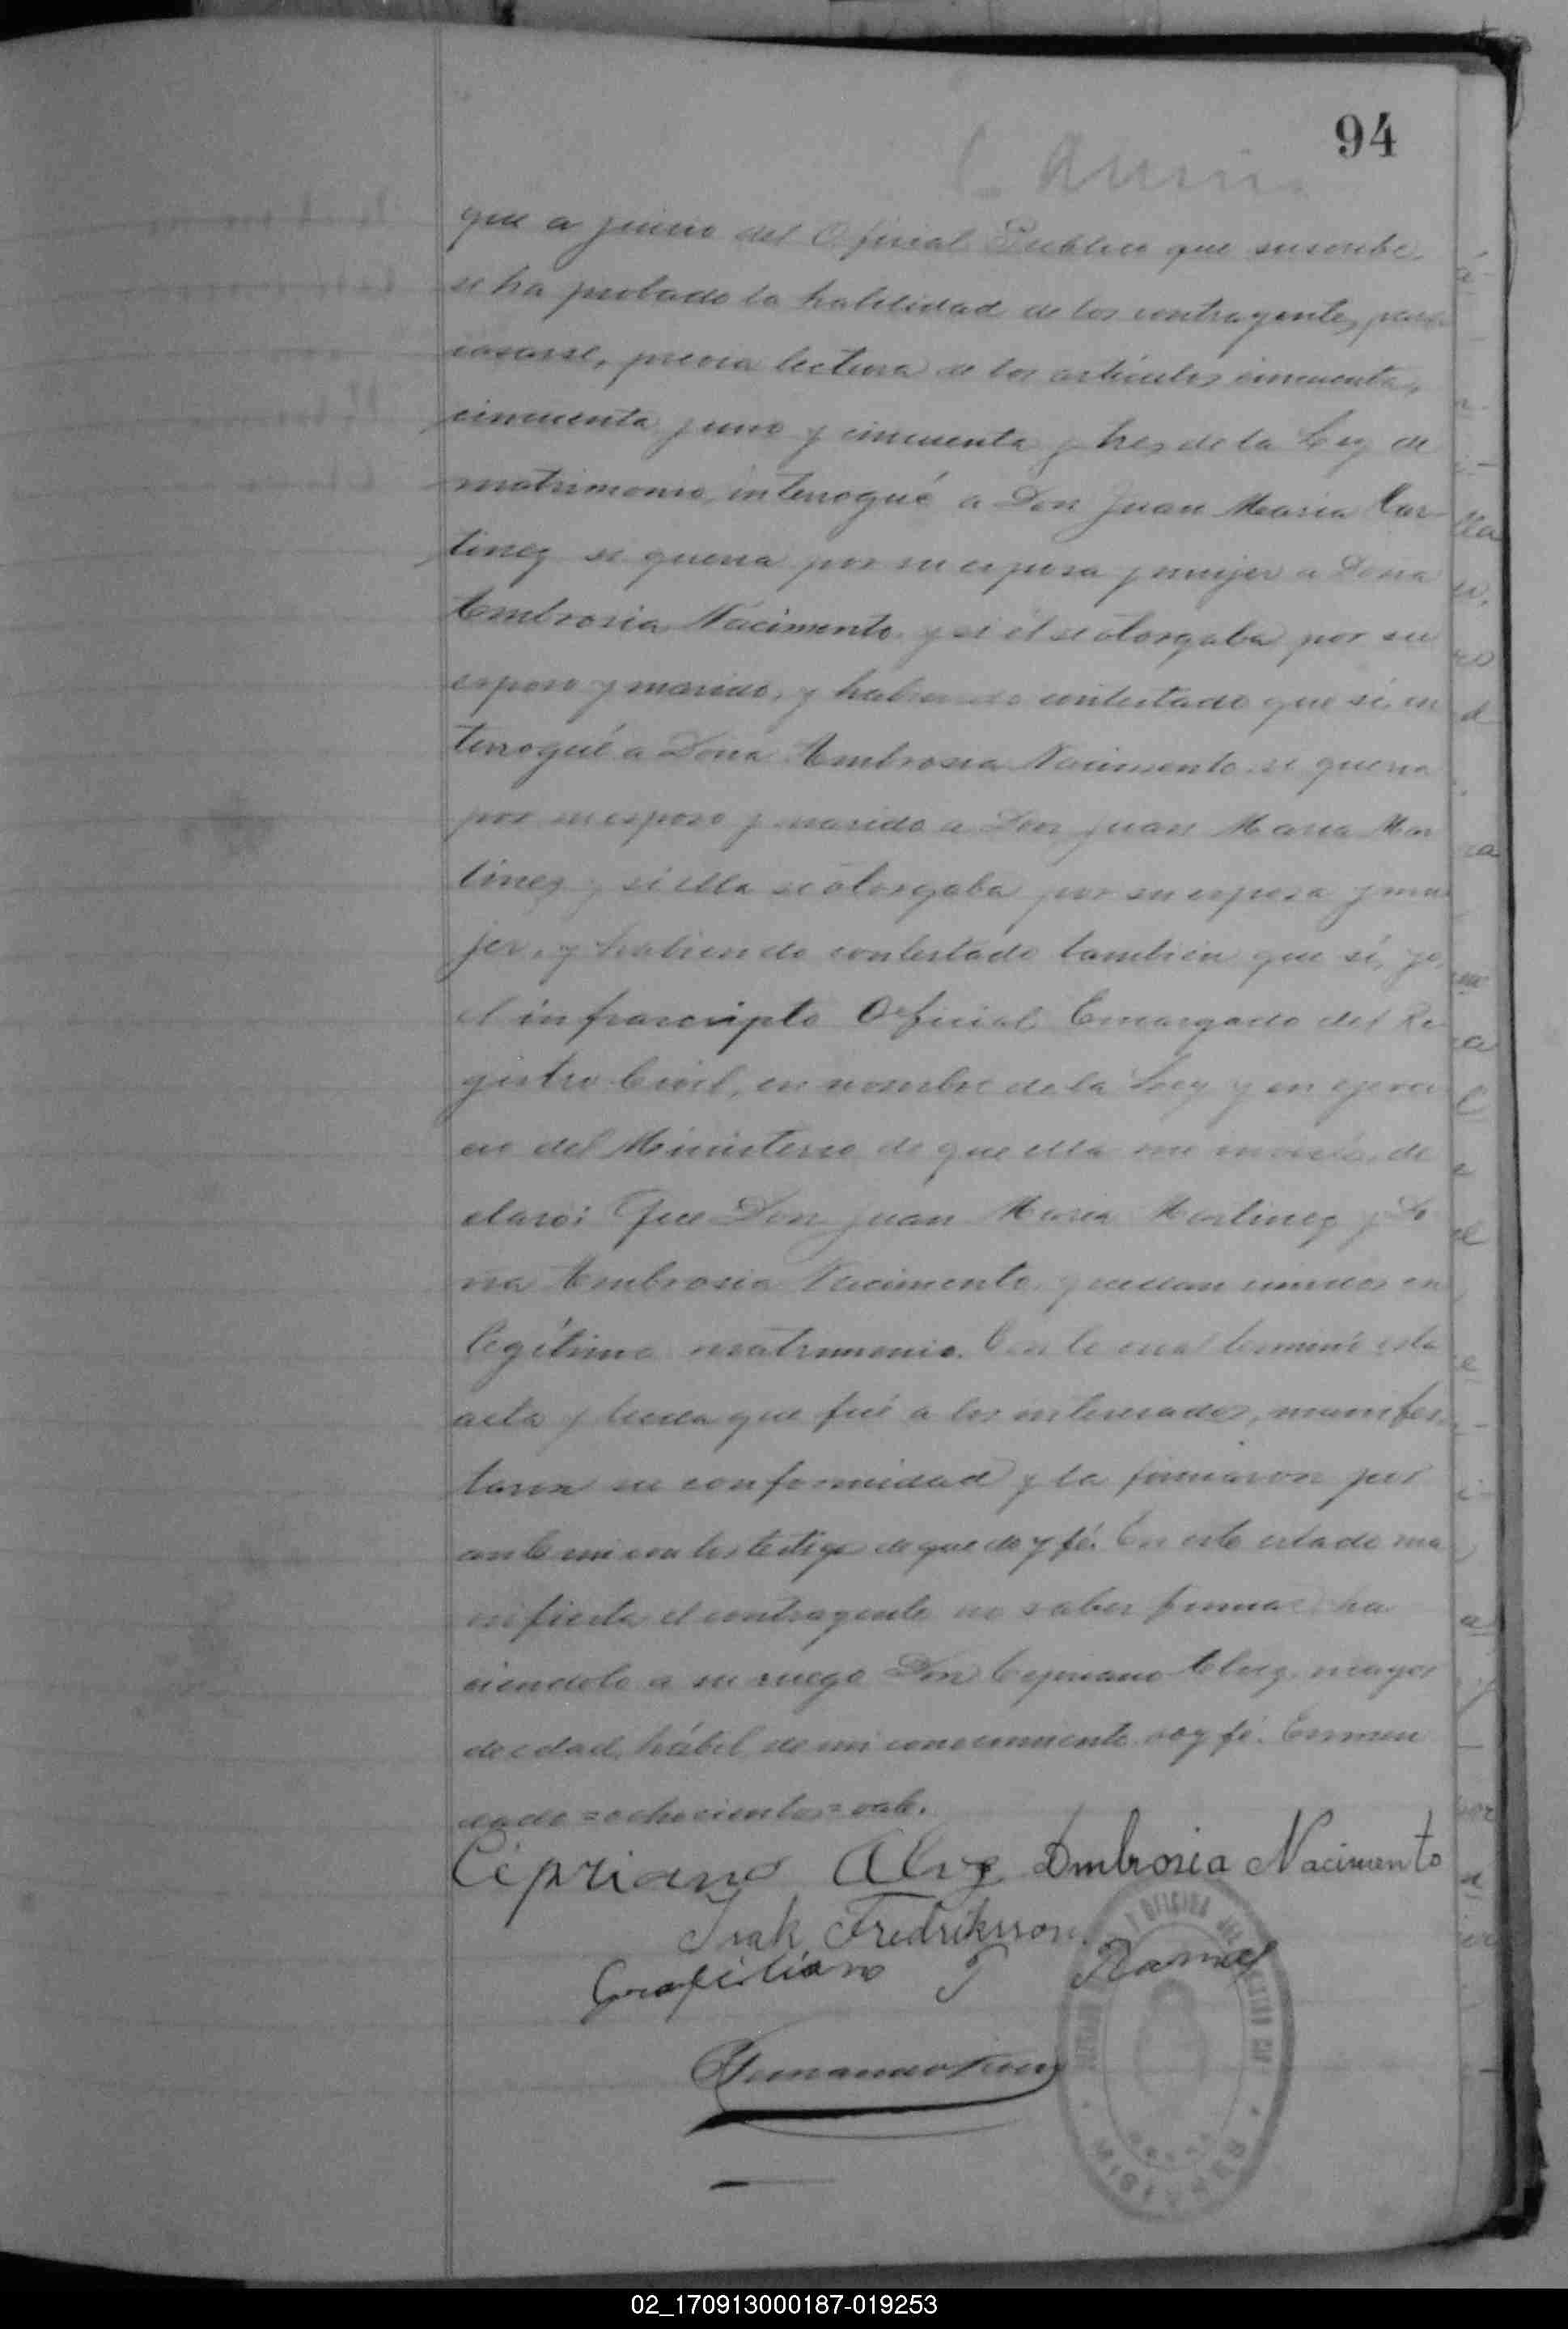 94
que a juicio del Oficial Publico que suscribe,
se ha probado la habilidad de los contrayentes, para
casarse, previa lectura de los artículos cincuenta,
cincuenta y uno y cincuenta y tres de la Ley de
matrimonio, interrogué a Don Juan Maria Mar-
tinez si queria por su esposa y mujer a Doña
Ambrosia Nacimento y si él se otorgaba por su
esposo y marido, y habiendo contestado que sí, in
terrogué a Doña Ambrosia Nacimento si queria
por su esposo y marido a Don Juan Maria Mar
tinez y si ella se otorgaba por su esposa y mu
jer, y habiendo contestado tambien que sí, yo,
el infrascripto Oficial Encargado del Re
gistro Civil, en nombre de la Ley y en ejerci
cio del Ministerio de que ella me inviste, de
claro: Que Don Juan Maria Martinez y Do
ña Ambrosia Nacimento quedan unidos en
legítimo matrimonio. Con lo cual terminó esta
acta y leida que fué a los interesados, manifes
taron su conformidad y la firmaron por
ante mi con los testigos de que doy fé. En este estado ma
nifiesta el contrayente no saber firmar ha
ciendolo a su ruego Don Cipriano Alvez mayor
de edad, hábil de mi conocimiento doy fé. Enmen
dado = ochocientos = vale.
Cipriano Alvez Ambrosia Nacimento
Isak Fredriksson
Ramos
MISIONES
02_170913000187-019253